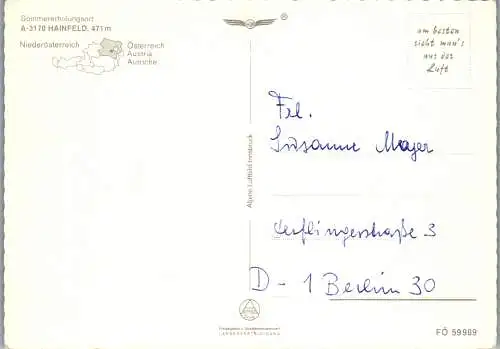 Sommererholungsort
A-3170 HAINFELD, 471 m
Niederösterreich
Österreich
Austria
Autriche
®
am besten
sieht man's
aus der
Luft
Alpine Luftbild Innsbruck
Frl.
Susanne Mayer
Keplingerstraße 3
D-1 Berlin 30
FÖ 59989